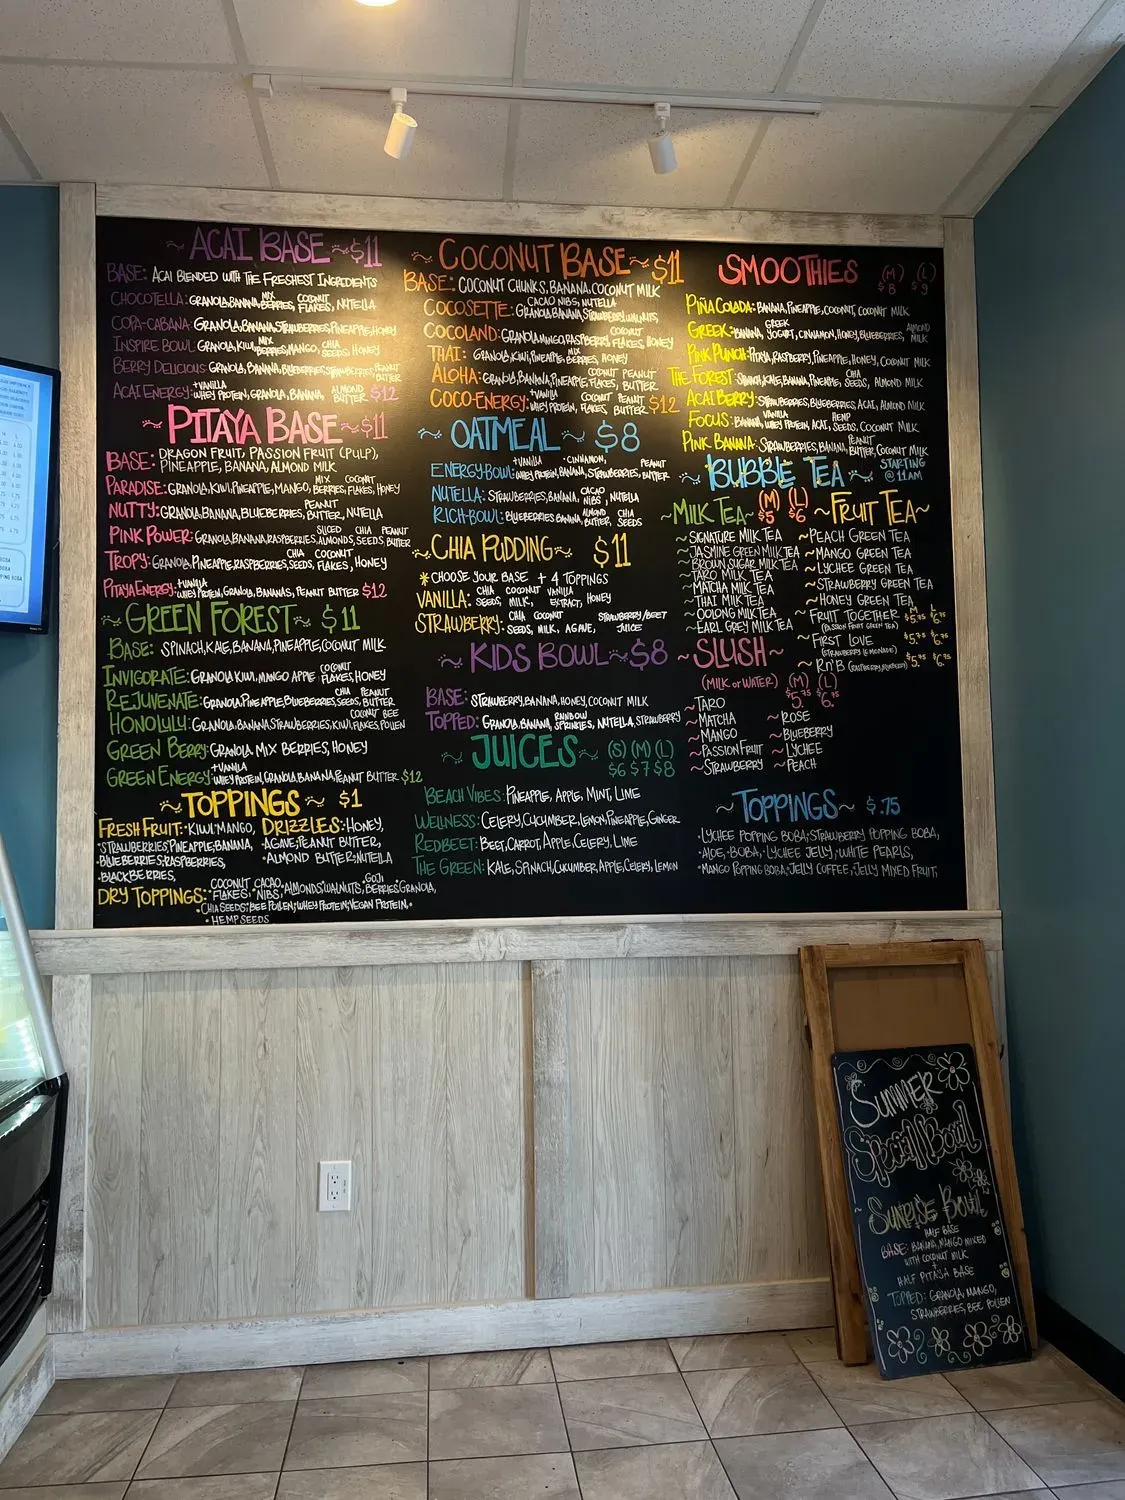 ~ ACAI BASE ~ $11
BASE: ACAI BLENDED WITH THE FRESHEST INGREDIENTS
CHOCOTELLA: GRANOLA, BANANA, MIX BERRIES, COCONUT FLAKES, NUTELLA
COPA-CABANA: GRANOLA, BANANA, STRAWBERRIES, PINEAPPLE, HONEY
INSPIRE BOWL: GRANOLA, KIWI, MIX BERRIES, MANGO, CHIA SEEDS, HONEY
BERRY DELICIOUS: GRANOLA, BANANA, BLUEBERRIES, STRAWBERRIES, PEANUT BUTTER
ACAI ENERGY: +VANILLA WHEY PROTEIN, GRANOLA, BANANA, ALMOND BUTTER $12
~ PITAYA BASE ~ $11
BASE: DRAGON FRUIT, PASSION FRUIT (PULP),
PINEAPPLE, BANANA, ALMOND MILK
PARADISE: GRANOLA, KIWI, PINEAPPLE, MANGO, MIX BERRIES, COCONUT FLAKES, HONEY
NUTTY: GRANOLA, BANANA, BLUEBERRIES, PEANUT BUTTER, NUTELLA
PINK POWER: GRANOLA, BANANA, RASPBERRIES, SLICED ALMONDS, CHIA SEEDS, PEANUT BUTTER
TROPY: GRANOLA, PINEAPPLE, RASPBERRIES, CHIA SEEDS, COCONUT FLAKES, HONEY
PITAYA ENERGY: +VANILLA WHEY PROTEIN, GRANOLA, BANANAS, PEANUT BUTTER $12
~ GREEN FOREST ~ $11
BASE: SPINACH, KALE, BANANA, PINEAPPLE, COCONUT MILK
INVIGORATE: GRANOLA KIWI, MANGO APPLE COCONUT FLAKES, HONEY
REJUVENATE: GRANOLA, PINEAPPLE, BLUEBERRIES, CHIA SEEDS, PEANUT BUTTER
HONOLULU: GRANOLA, BANANA, STRAWBERRIES, KIWI, COCONUT FLAKES, BEE POLLEN
GREEN BERRY: GRANOLA MIX BERRIES, HONEY
GREEN ENERGY: +VANILLA WHEY PROTEIN, GRANOLA, BANANA, PEANUT BUTTER $12
~ TOPPINGS ~ $1
FRESH FRUIT: •KIWI •MANGO,
•STRAWBERRIES, PINEAPPLE, BANANA,
•BLUEBERRIES, •RASPBERRIES,
•BLACKBERRIES,
DRIZZLES: •HONEY,
•AGAVE, PEANUT BUTTER,
•ALMOND BUTTER, •NUTELLA
DRY TOPPINGS: COCONUT FLAKES, •CACAO NIBS, •ALMONDS, WALNUTS, GOJI BERRIES, GRANOLA,
•CHIA SEEDS, BEE POLLEN, WHEY PROTEIN, VEGAN PROTEIN,
•HEMP SEEDS
~ COCONUT BASE ~ $11
BASE: COCONUT CHUNKS, BANANA, COCONUT MILK
COCOSETTE: GRANOLA, BANANA, STRAWBERRIES, WALNUTS, CACAO NIBS, NUTELLA
COCOLAND: GRANOLA, MANGO, RASPBERRY, COCONUT FLAKES, HONEY
THAI: GRANOLA, KIWI, PINEAPPLE, MIX BERRIES, HONEY
ALOHA: GRANOLA, BANANA, PINEAPPLE, COCONUT FLAKES, PEANUT BUTTER
COCO-ENERGY: +VANILLA WHEY PROTEIN, COCONUT FLAKES, PEANUT BUTTER $12
~ OATMEAL ~ $8
ENERGY BOWL: +VANILLA WHEY PROTEIN, CINNAMON, BANANA, STRAWBERRIES, PEANUT BUTTER
NUTELLA: STRAWBERRIES, BANANA, CACAO NIBS, NUTELLA
RICH-BOWL: BLUEBERRIES BANANA, ALMOND BUTTER, CHIA SEEDS
~ CHIA PUDDING ~ $11
*CHOOSE YOUR BASE + 4 TOPPINGS
VANILLA: CHIA SEEDS, COCONUT MILK, VANILLA EXTRACT, HONEY
STRAWBERRY: CHIA SEEDS, COCONUT MILK, AGAVE, STRAWBERRY/BEET JUICE
~ KIDS BOWL ~ $8
BASE: STRAWBERRY, BANANA, HONEY, COCONUT MILK
TOPPED: GRANOLA, BANANA, RAINBOW SPRINKLES, NUTELLA, STRAWBERRY
~ JUICES ~ (S) (M) (L)
$6 $7 $8
BEACH VIBES: PINEAPPLE, APPLE, MINT, LIME
WELLNESS: CELERY, CUCUMBER, LEMON, PINEAPPLE, GINGER
REDBEET: BEET, CARROT, APPLE, CELERY, LIME
THE GREEN: KALE, SPINACH, CUCUMBER, APPLE, CELERY, LEMON
SMOOTHIES (M) (L)
$8 $9
PIÑA COLADA: BANANA, PINEAPPLE, COCONUT, COCONUT MILK
GREEK: BANANA, GREEK YOGURT, CINNAMON, HONEY, BLUEBERRIES, ALMOND MILK
PINK PUNCH: PITAYA, RASPBERRY, PINEAPPLE, HONEY, COCONUT MILK
THE FOREST: SPINACH, KALE, BANANA, PINEAPPLE, CHIA SEEDS, ALMOND MILK
ACAI BERRY: STRAWBERRIES, BLUEBERRIES, ACAI, ALMOND MILK
FOCUS: BANANA, VANILLA WHEY PROTEIN, ACAI, HEMP SEEDS, COCONUT MILK
PINK BANANA: STRAWBERRIES, BANANA, PEANUT BUTTER, COCONUT MILK
~ BUBBLE TEA ~ STARTING @ 11AM
~ MILK TEA ~ (M) (L)
$5 $6
~ SIGNATURE MILK TEA
~ JASMINE GREEN MILK TEA
~ BROWN SUGAR MILK TEA
~ TARO MILK TEA
~ MATCHA MILK TEA
~ THAI MILK TEA
~ OOLONG MILK TEA
~ EARL GREY MILK TEA
~ FRUIT TEA ~
~ PEACH GREEN TEA
~ MANGO GREEN TEA
~ LYCHEE GREEN TEA
~ STRAWBERRY GREEN TEA
~ HONEY GREEN TEA
~ FRUIT TOGETHER M $5.75 L $6.75
(PASSION FRUIT GREEN TEA)
~ FIRST LOVE $5.75 $6.75
(STRAWBERRY LEMONADE)
~ RN'B (RASPBERRY, BLUEBERRY) $5.75 $6.75
~ SLUSH ~
(MILK OR WATER) (M) (L)
$5.75 $6.75
~ TARO
~ MATCHA
~ MANGO
~ PASSION FRUIT
~ STRAWBERRY
~ ROSE
~ BLUEBERRY
~ LYCHEE
~ PEACH
~ TOPPINGS ~ $.75
•LYCHEE POPPING BOBA, STRAWBERRY POPPING BOBA,
•ALOE, •BOBA, •LYCHEE JELLY, •WHITE PEARLS,
•MANGO POPPING BOBA, •JELLY COFFEE, JELLY MIXED FRUIT,
SUMMER
SPECIAL BOWL
SUNRISE BOWL
HALF BASE
BASE: BANANA, MANGO MIXED
WITH COCONUT MILK
+
HALF PITAYA BASE
TOPPED: GRANOLA, MANGO,
STRAWBERRIES, BEE POLLEN